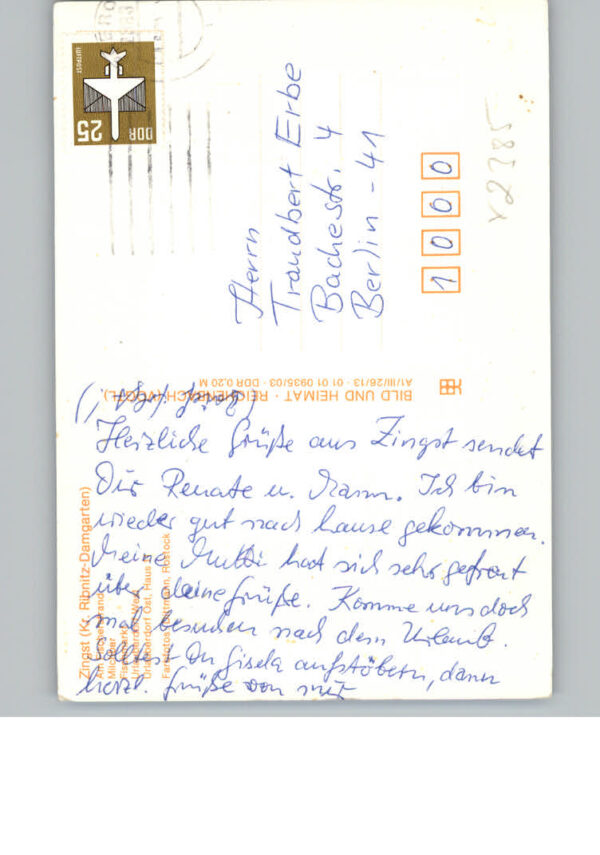 LUFTPOST
DDR
25
Herrn
Traudbert Erbe
Bachestr. 4
Berlin - 41
1000
V2385
BILD UND HEIMAT · REICHENBACH (VOGTL)
A1/III/26/13 · 01 01 0935/03 · DDR 0,20 M
Herzliche Grüße aus Zingst sendet
Dir Renate u. Mann. Ich bin
wieder gut nach hause gekommen.
Meine Mutti hat sich sehr gefreut
über deine Grüße. Komme uns doch
mal besuchen nach dem Urlaub.
Solltest Du Gisela aufstöbern, dann
herzl. Grüße von mir
Zingst (Kr. Ribnitz-Damgarten)
Urlauberdorf Ost, Haus
Farbfotos: Rostock